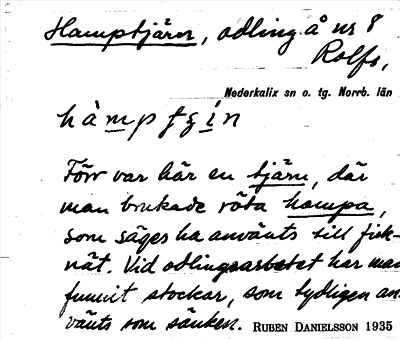 Hamptjärn, odling å nr 8
Rolfs,
Nederkalix sn o. tg. Norrb. län
hàmptʒin
Förr var här en tjärn, där
man brukade röta hampa,
som säges ha använts till fisk-
nät. Vid odlingsarbetet har man
funnit stockar, som tydligen an-
vänts som sänken. RUBEN DANIELSSON 1935